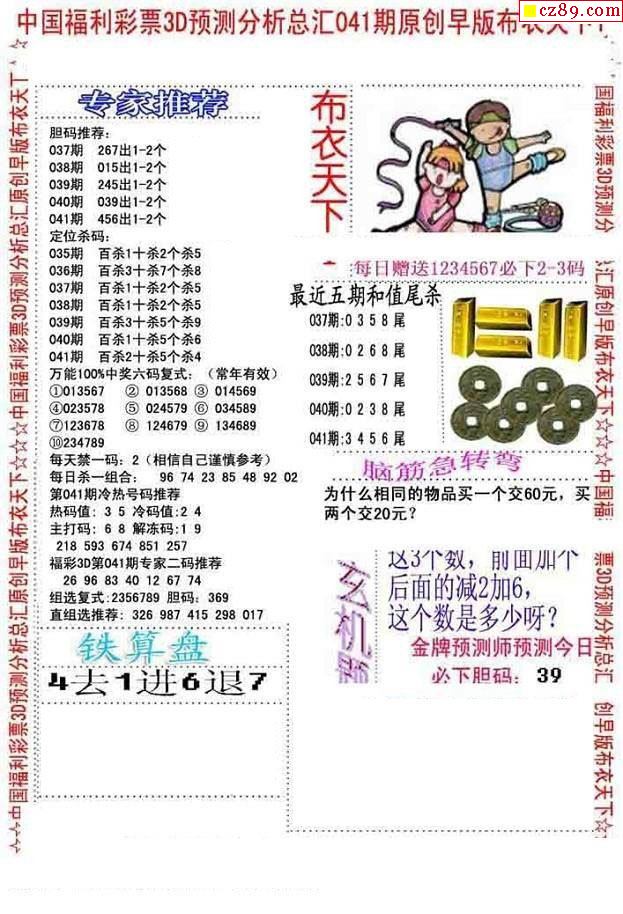 cz89.com
中国福利彩票3D预测分析总汇041期原创早版布衣天下
专家推荐
胆码推荐:
037期 267出1-2个
038期 015出1-2个
039期 245出1-2个
040期 039出1-2个
041期 456出1-2个
定位杀码:
035期 百杀1十杀2个杀5
036期 百杀3十杀7个杀8
037期 百杀1十杀2个杀5
038期 百杀1十杀2个杀5
039期 百杀3十杀5个杀9
040期 百杀1十杀5个杀6
041期 百杀2十杀5个杀4
万能100%中奖六码复式:(常年有效)
①013567 ②013568 ③014569
④023578 ⑤024579 ⑥034589
⑦123678 ⑧124679 ⑨134689
⑩234789
每天禁一码: 2(相信自己谨慎参考)
每日杀一组合: 96 74 23 85 48 92 02
第041期冷热号码推荐
热码值: 3 5 冷码值:2 4
主打码: 6 8 解冻码:1 9
218 593 674 851 257
福彩3D第041期专家二码推荐
26 96 83 40 12 67 74
组选复式:2356789 胆码: 369
直组选推荐: 326 987 415 298 017
铁算盘
4去1进6退7
布衣天下
每日赠送1234567必下2-3码
最近五期和值尾杀
037期:0 3 5 8 尾
038期:0 2 6 8 尾
039期:2 5 6 7 尾
040期:0 2 3 8 尾
041期:3 4 5 6 尾
脑筋急转弯
为什么相同的物品买一个交60元, 买
两个交20元?
玄机
这3个数, 前面加个
后面的减2加6,
这个数是多少呀?
金牌预测师预测今日
必下胆码: 39
☆☆中国福利彩票3D预测分析总汇原创早版布衣天下☆☆☆中国福利彩票3D预测分析总汇原创早版布衣天下
国福利彩票3D预测分
汇原创早版布衣天下☆☆☆中国福
票3D预测分析总汇
创早版布衣天下☆